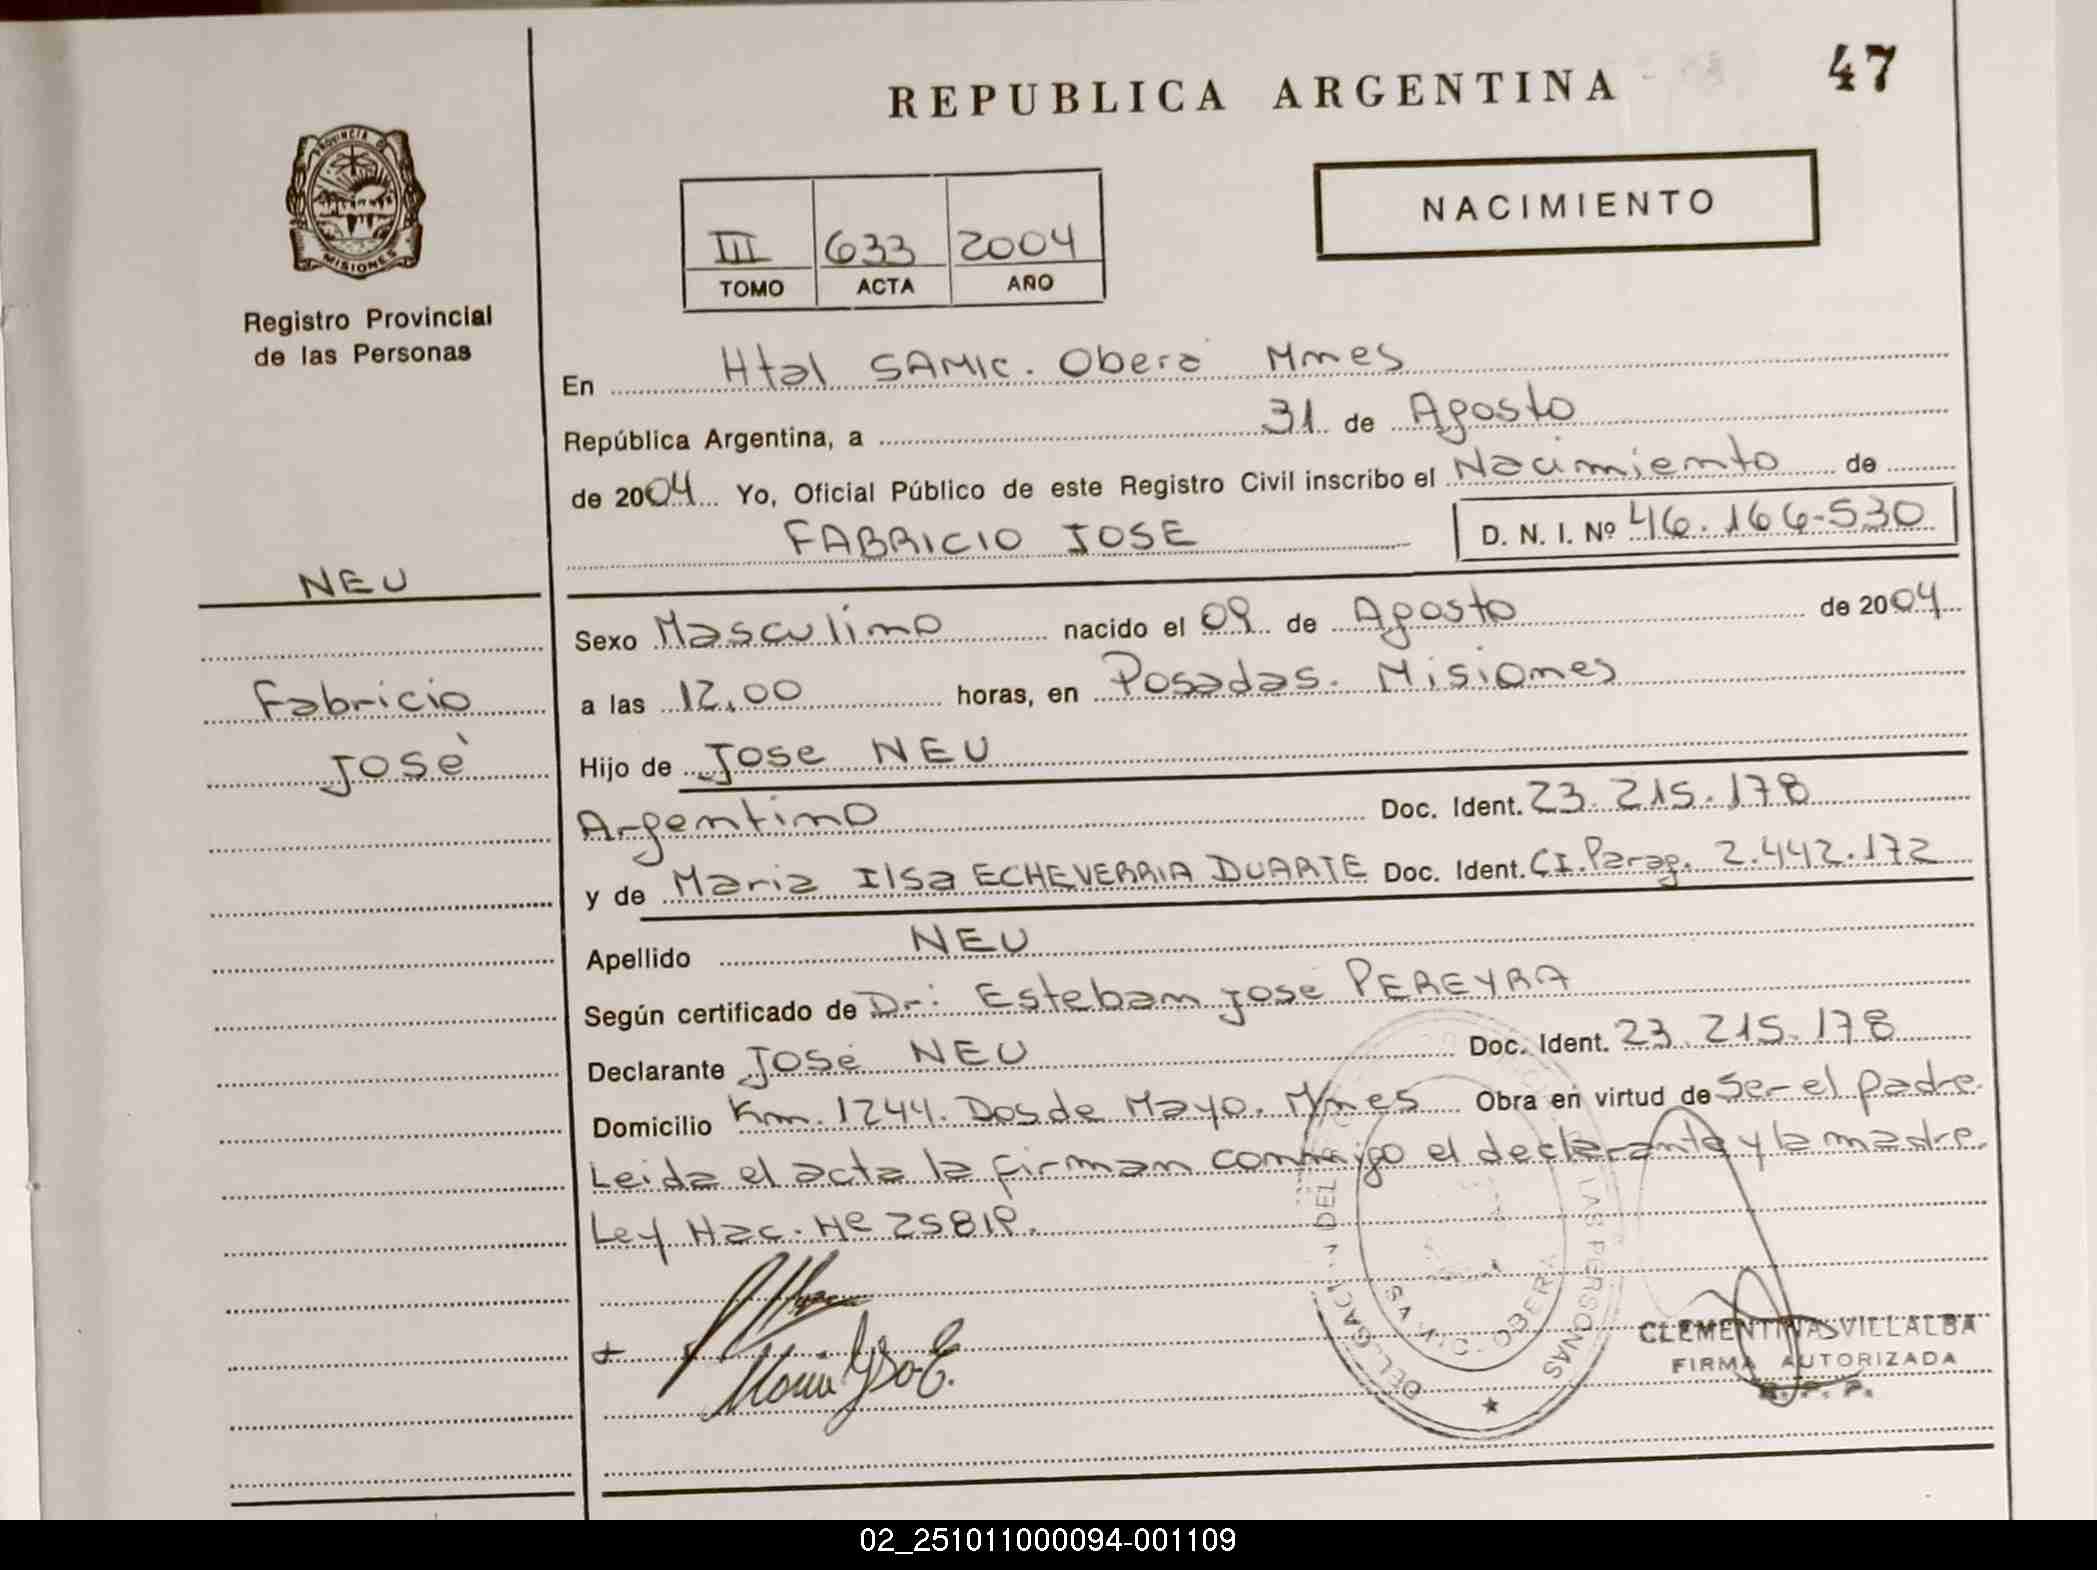 REPUBLICA ARGENTINA
47
PROVINCIA DE
MISIONES
Registro Provincial
de las Personas
III 633 2004
TOMO ACTA AÑO
NACIMIENTO
En Htal SAMIC. Oberá Mnes
República Argentina, a 31 de Agosto
de 2004 Yo, Oficial Público de este Registro Civil inscribo el Nacimiento de
FABRICIO JOSE D. N. I. Nº 46.166.530
NEU
Fabricio
José
Sexo Masculino nacido el 09 de Agosto de 2004
a las 12,00 horas, en Posadas. Misiones
Hijo de Jose NEU
Argentino Doc. Ident. 23.215.178
y de Maria Ilsa ECHEVERRIA DUARTE Doc. Ident. CI. Parag. 2.442.172
Apellido NEU
Según certificado de Dr: Esteban Jose PEREYRA
Declarante José NEU Doc. Ident. 23.215.178
Domicilio Km. 1244. Dos de Mayo. Mnes Obra en virtud de Ser el padre.
Leida el acta la firman conmigo el declarante y la madre.
Ley Nac. Nº 25819.
DEL LAS PERSONAS
OBERA
CLEMENTINA VILLALBA
FIRMA AUTORIZADA
R. P. P.
02_251011000094-001109